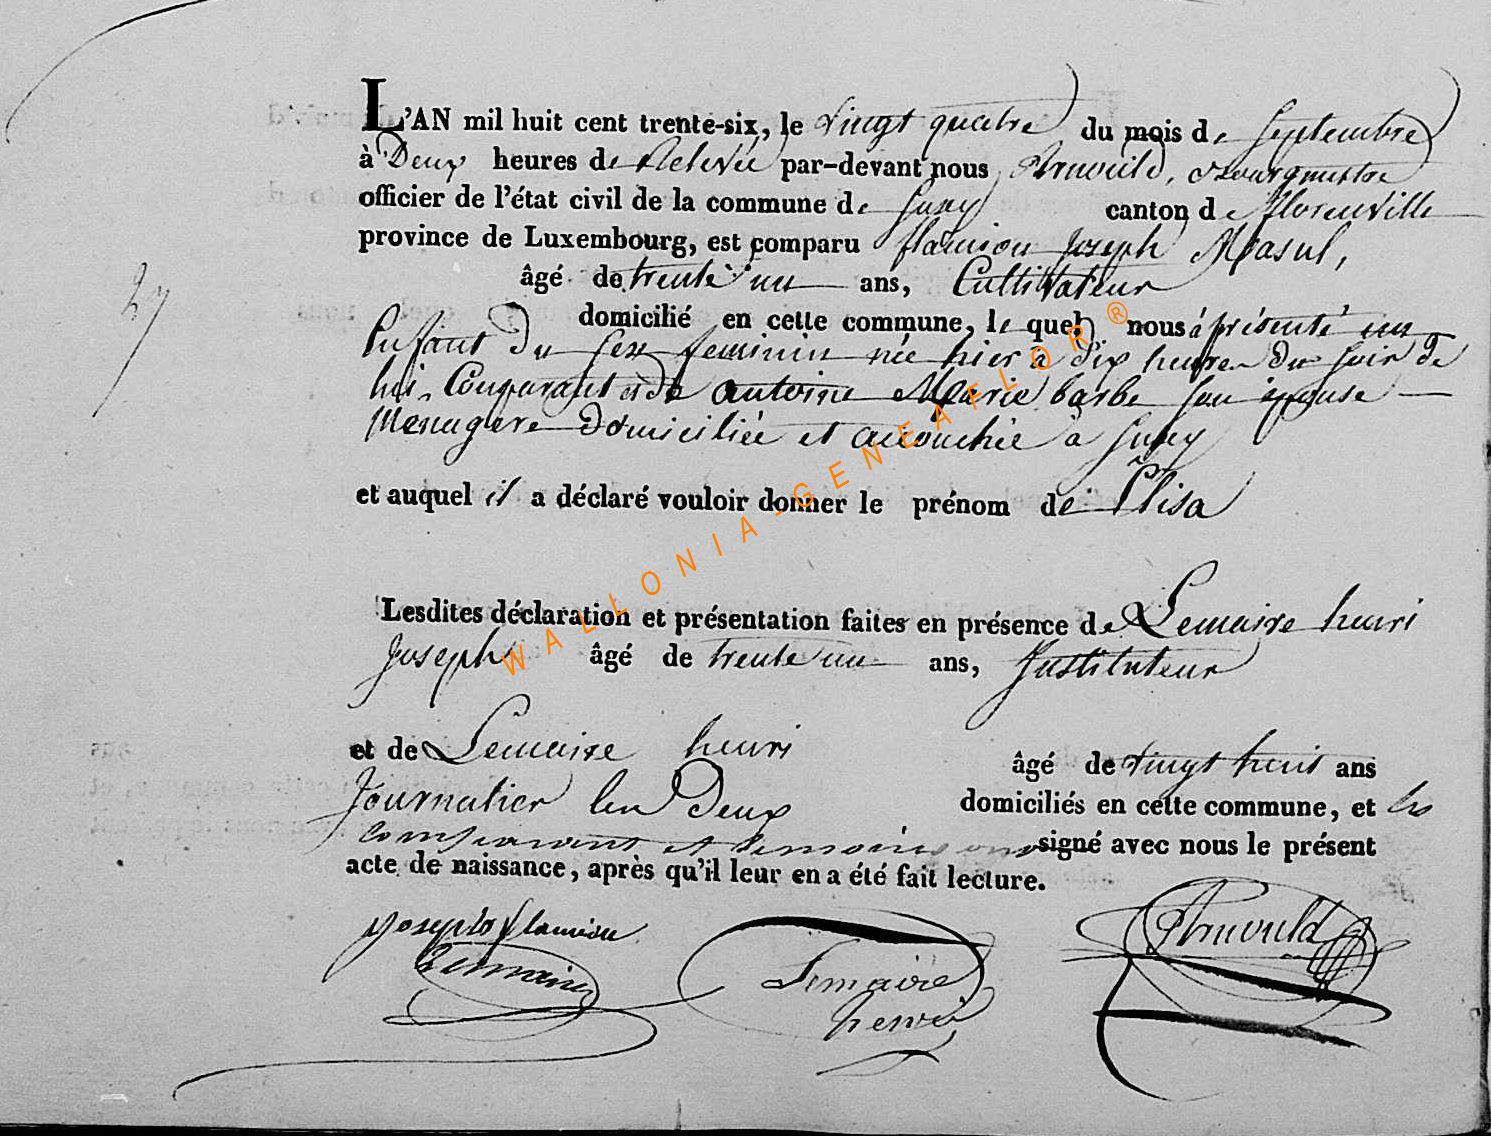 L'AN mil huit cent trente-six, le vingt quatre du mois de Septembre
à Deux heures de Relevée par-devant nous Arnould, Bourgmestre
officier de l'état civil de la commune de Suxy canton de florenville
province de Luxembourg, est comparu flamion Joseph
âgé de trente un ans, Cultivateur
27
domicilié en cette commune, le quel nous à présenté un
Enfant du sex feminin née hier à dix heures du soir de
lui Comparant et de antoine Marie barbe son épouse
Menagere domiciliée et accouchée à Suxy
et auquel il a déclaré vouloir donner le prénom de Elisa
Lesdites déclaration et présentation faites en présence de Lemaire henri
Joseph âgé de trente un ans, Instituteur
et de Lemaire henri âgé de vingt huit ans
Journalier les Deux domiciliés en cette commune, et les
comparant et temoins ont signé avec nous le présent
acte de naissance, après qu'il leur en a été fait lecture.
Joseph flamion
Lemaire
Lemaire
henri
Arnould
WALLONIA-GENEAFLOR®